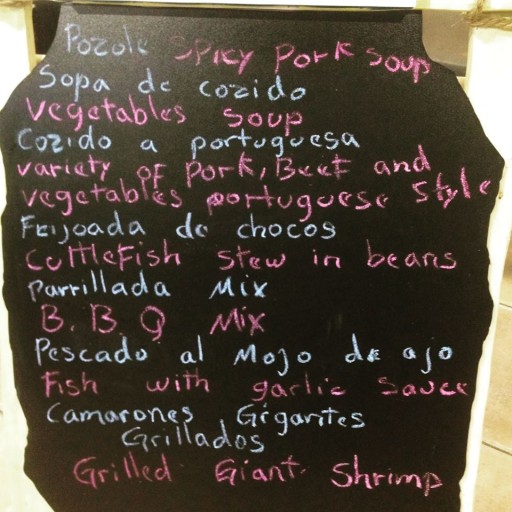 Pozole Spicy Pork Soup
Sopa de cozido
Vegetables Soup
Cozido a portuguesa
variety of Pork, Beef and
vegetables portuguese Style
Feijoada de chocos
Cuttlefish Stew in beans
Parrillada Mix
B.B.Q Mix
Pescado al Mojo de ajo
Fish with garlic Sauce
Camarones Gigantes
Grillados
Grilled Giant Shrimp